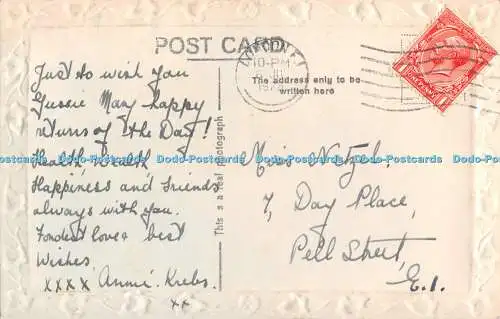 POST CARD
LONDON. E.1
10-PM
The address only to be
written here
Just to wish you
Gussie Many happy
returns of the Day!
Health, Wealth,
Happiness and Friends
always with you.
Fondest love & best
Wishes
xxxx Annie Krebs.
xx
This is a real photograph
Miss Netzel,
7, Day Place,
Pell Street,
E.1.
Dodo-Postcards Dodo-Postcards Dodo-Postcards Dodo-Postcards Dodo-Postcards Dodo-Postcards